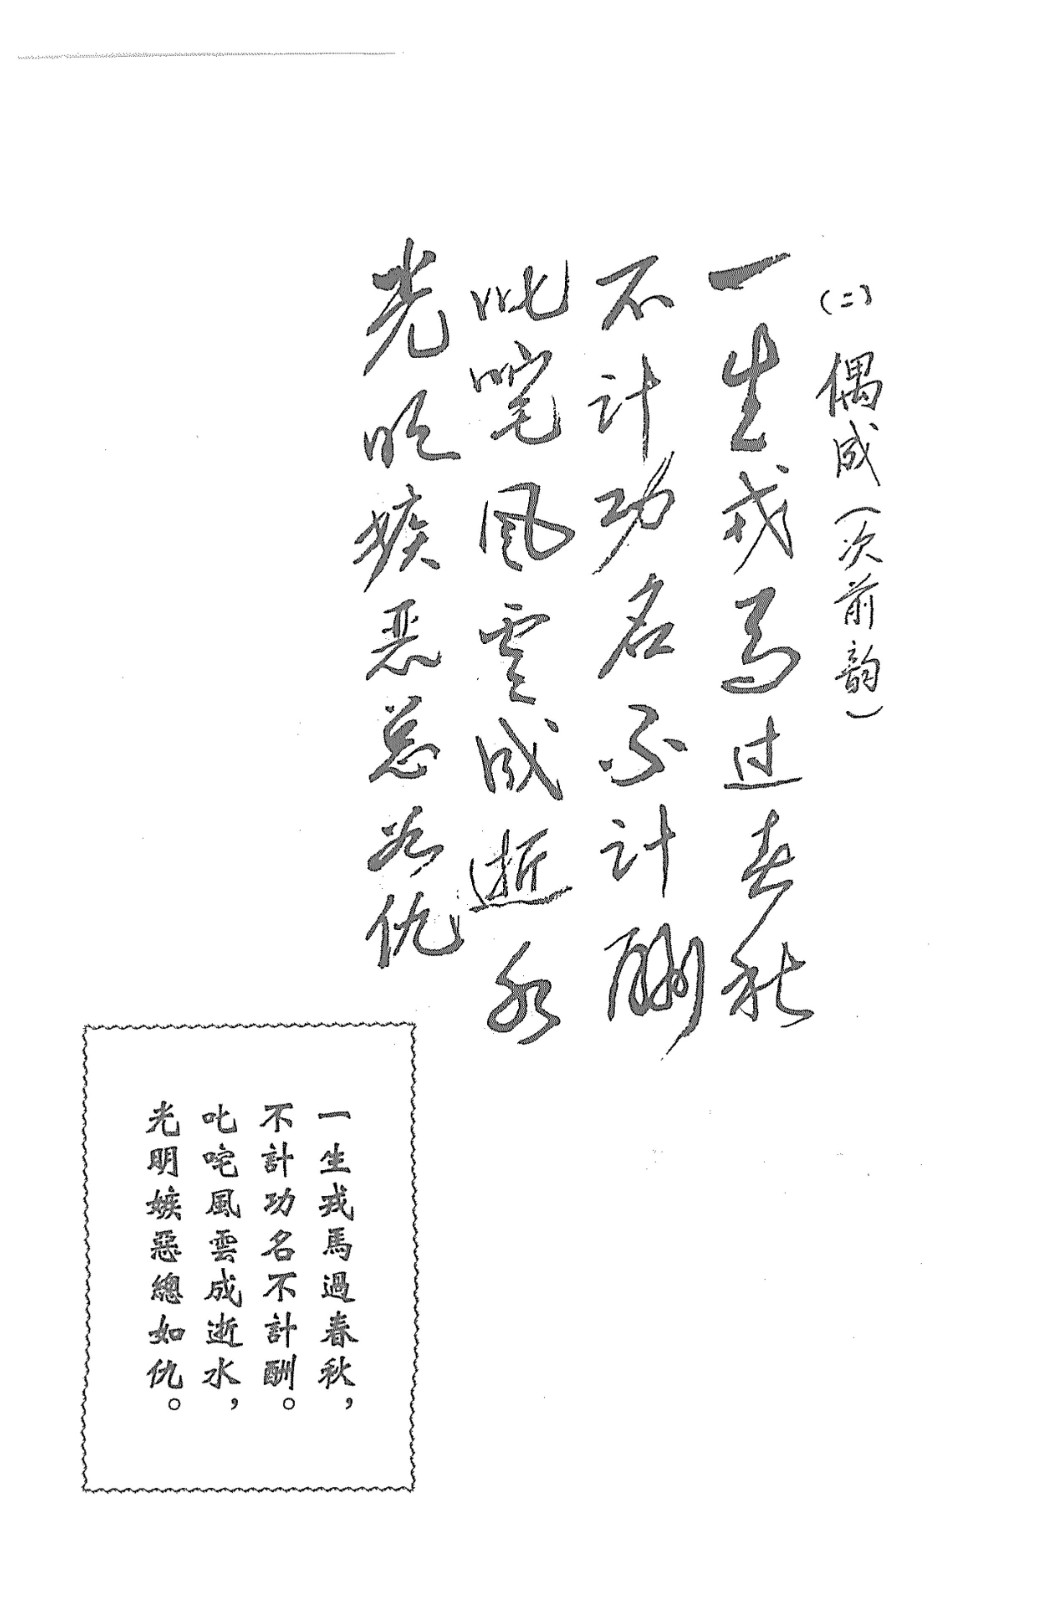 （二）偶成（次前韵）
一生戎马过春秋
不计功名不计酬
叱咤风雲成逝水
光明嫉恶总如仇
一生戎馬過春秋，
不計功名不計酬。
叱咤風雲成逝水，
光明嫉惡總如仇。